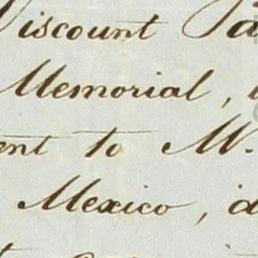 Discount
Memorial,
ent to M.
Mexico, d